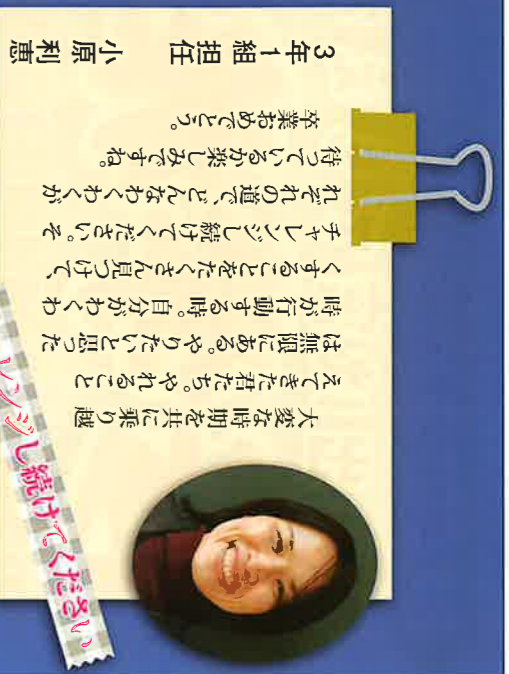 大変な時期を共に乗り越
えてきた君たち。やれること
は無限にある。やりたいと思った
時が行動する時。自分がわくわ
くすることをたくさん見つけて、
チャレンジし続けてください。そ
れぞれの道で、どんなわくわくが
待っているか楽しみですね。
卒業おめでとう。
3年1組担任 小原利恵
レンジし続けてください